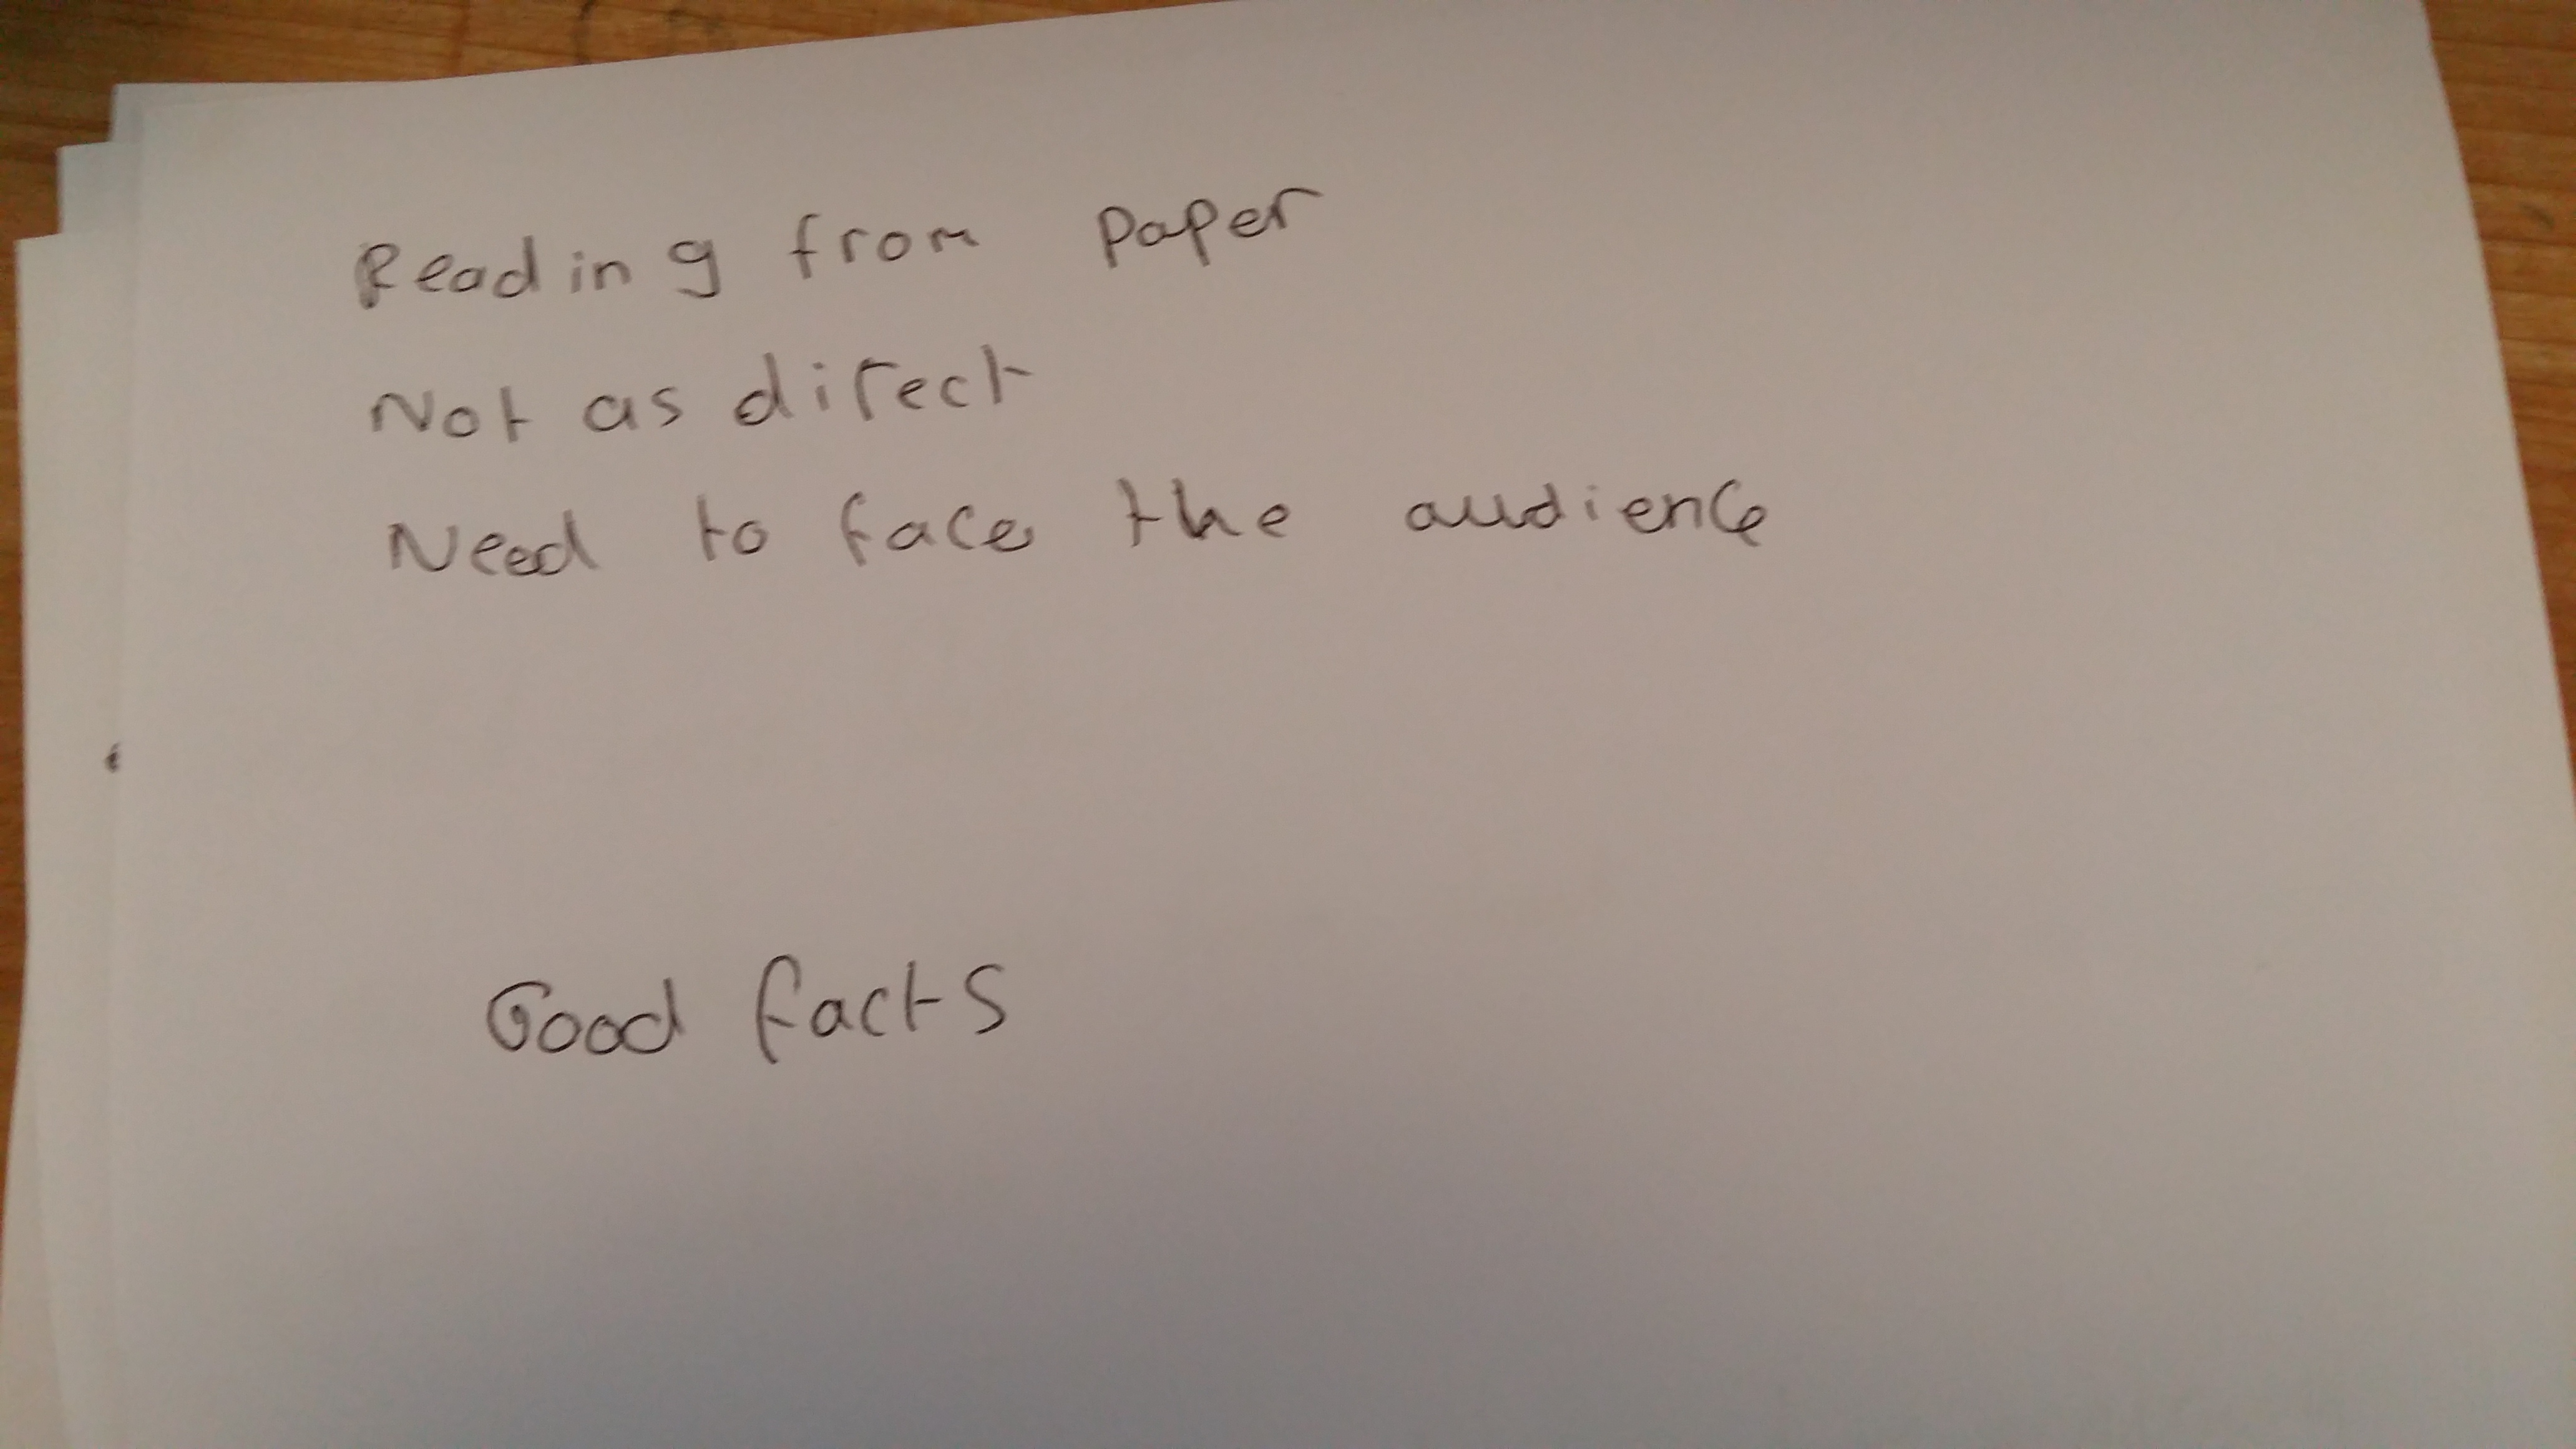 Reading from paper
Not as direct
Need to face the audience
Good facts